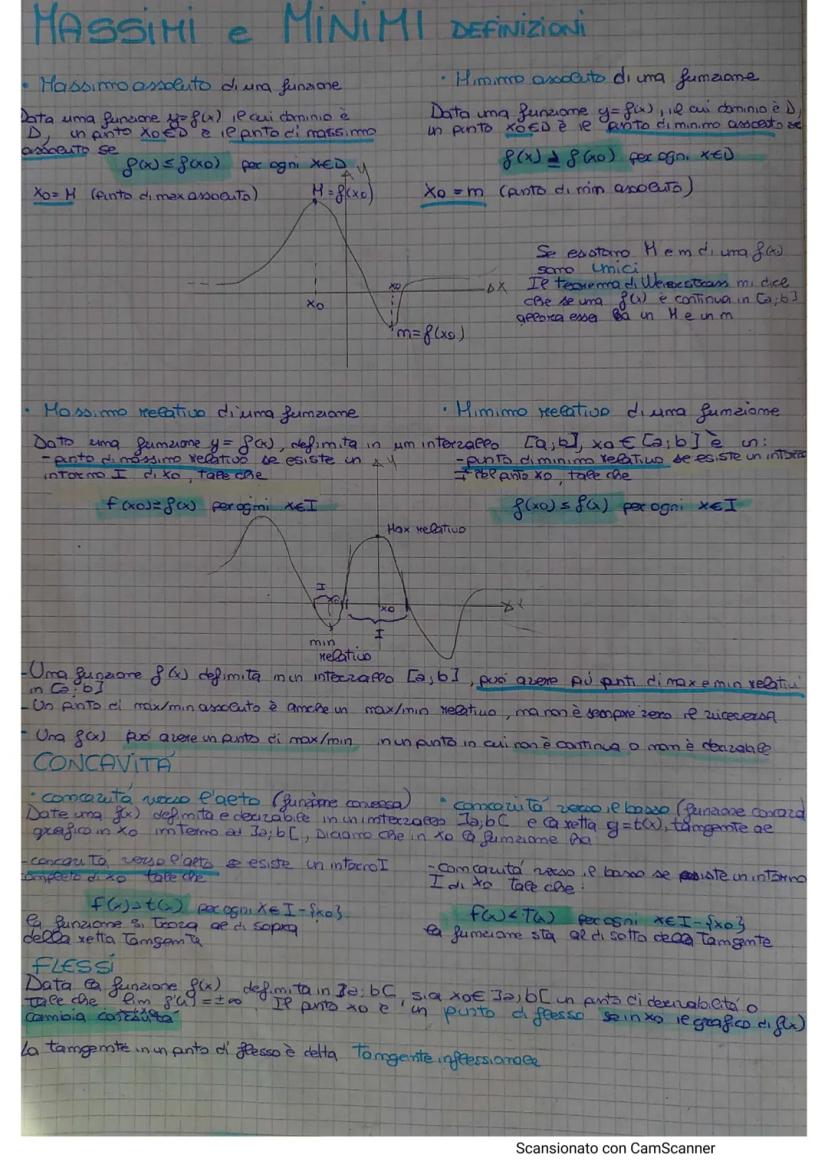 MASSIMI e MINIMI DEFINIZIONI
• Massimo assoluto di una funzione
Data una funzione y=f(x), il cui dominio è
D, un punto x0∈D è il punto di massimo
assoluto se
f(x)≤f(x0) per ogni x∈D
x0=M (punto di max assoluto)
• Minimo assoluto di una funzione
Data una funzione y=f(x), il cui dominio è D,
un punto x0∈D è il punto di minimo assoluto se
f(x)≥f(x0) per ogni x∈D
x0=m (punto di min assoluto)
y
M=f(x0)
x0
x0
x
m=f(x0)
Se esistono M e m di una f(x)
sono unici
Il teorema di Weierstrass mi dice
che se una f(x) è continua in [a;b]
allora essa ha un M e un m
• Massimo relativo di una funzione
• Minimo relativo di una funzione
Data una funzione y=f(x), definita in un intervallo [a;b], x0∈[a;b] è un:
- punto di massimo relativo se esiste un
intorno I di x0, tale che
f(x0)≥f(x) per ogni x∈I
- punto di minimo relativo se esiste un intorno
I del punto x0, tale che
f(x0)≤f(x) per ogni x∈I
y
Max relativo
I
x0
x0
x
I
min
relativo
- Una funzione f(x) definita in un intervallo [a;b], può avere più punti di max e min relativi
in [a;b]
- Un punto di max/min assoluto è anche un max/min relativo, ma non è sempre vero il viceversa
- Una f(x) può avere un punto di max/min in un punto in cui non è continua o non è derivabile
CONCAVITÀ
• concavità verso l'alto (funzione convessa)
• concavità verso il basso (funzione concava)
Data una f(x) definita e derivabile in un intervallo ]a;b[ e la retta y=t(x), tangente al
grafico in x0 interno ad ]a;b[, diciamo che in x0 la funzione ha:
- concavità verso l'alto se esiste un intorno I
completo di x0 tale che
f(x)>t(x) per ogni x∈I-{x0}
la funzione si trova al di sopra
della retta tangente
- concavità verso il basso se esiste un intorno
I di x0 tale che:
f(x)<T(x) per ogni x∈I-{x0}
la funzione sta al di sotto della tangente
FLESSI
Data la funzione f(x) definita in ]a;b[, sia x0∈]a;b[ un punto di derivabilità o
tale che lim f'(x)=±∞. Il punto x0 è un punto di flesso se in x0 il grafico di f(x)
cambia concavità
La tangente in un punto di flesso è detta Tangente inflessionale
Scansionato con CamScanner